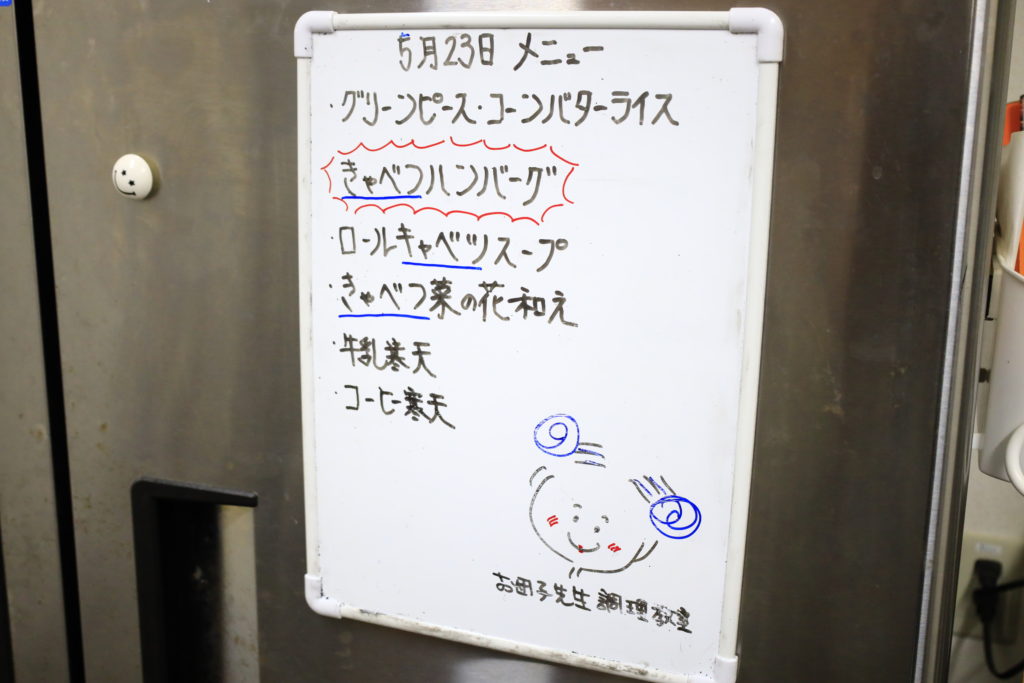 5月23日 メニュー
・グリーンピース・コーンバターライス
きゃべつハンバーグ
・ロールキャベツスープ
・きゃべつ菜の花和え
・牛乳寒天
・コーヒー寒天
お母子先生 調理教室